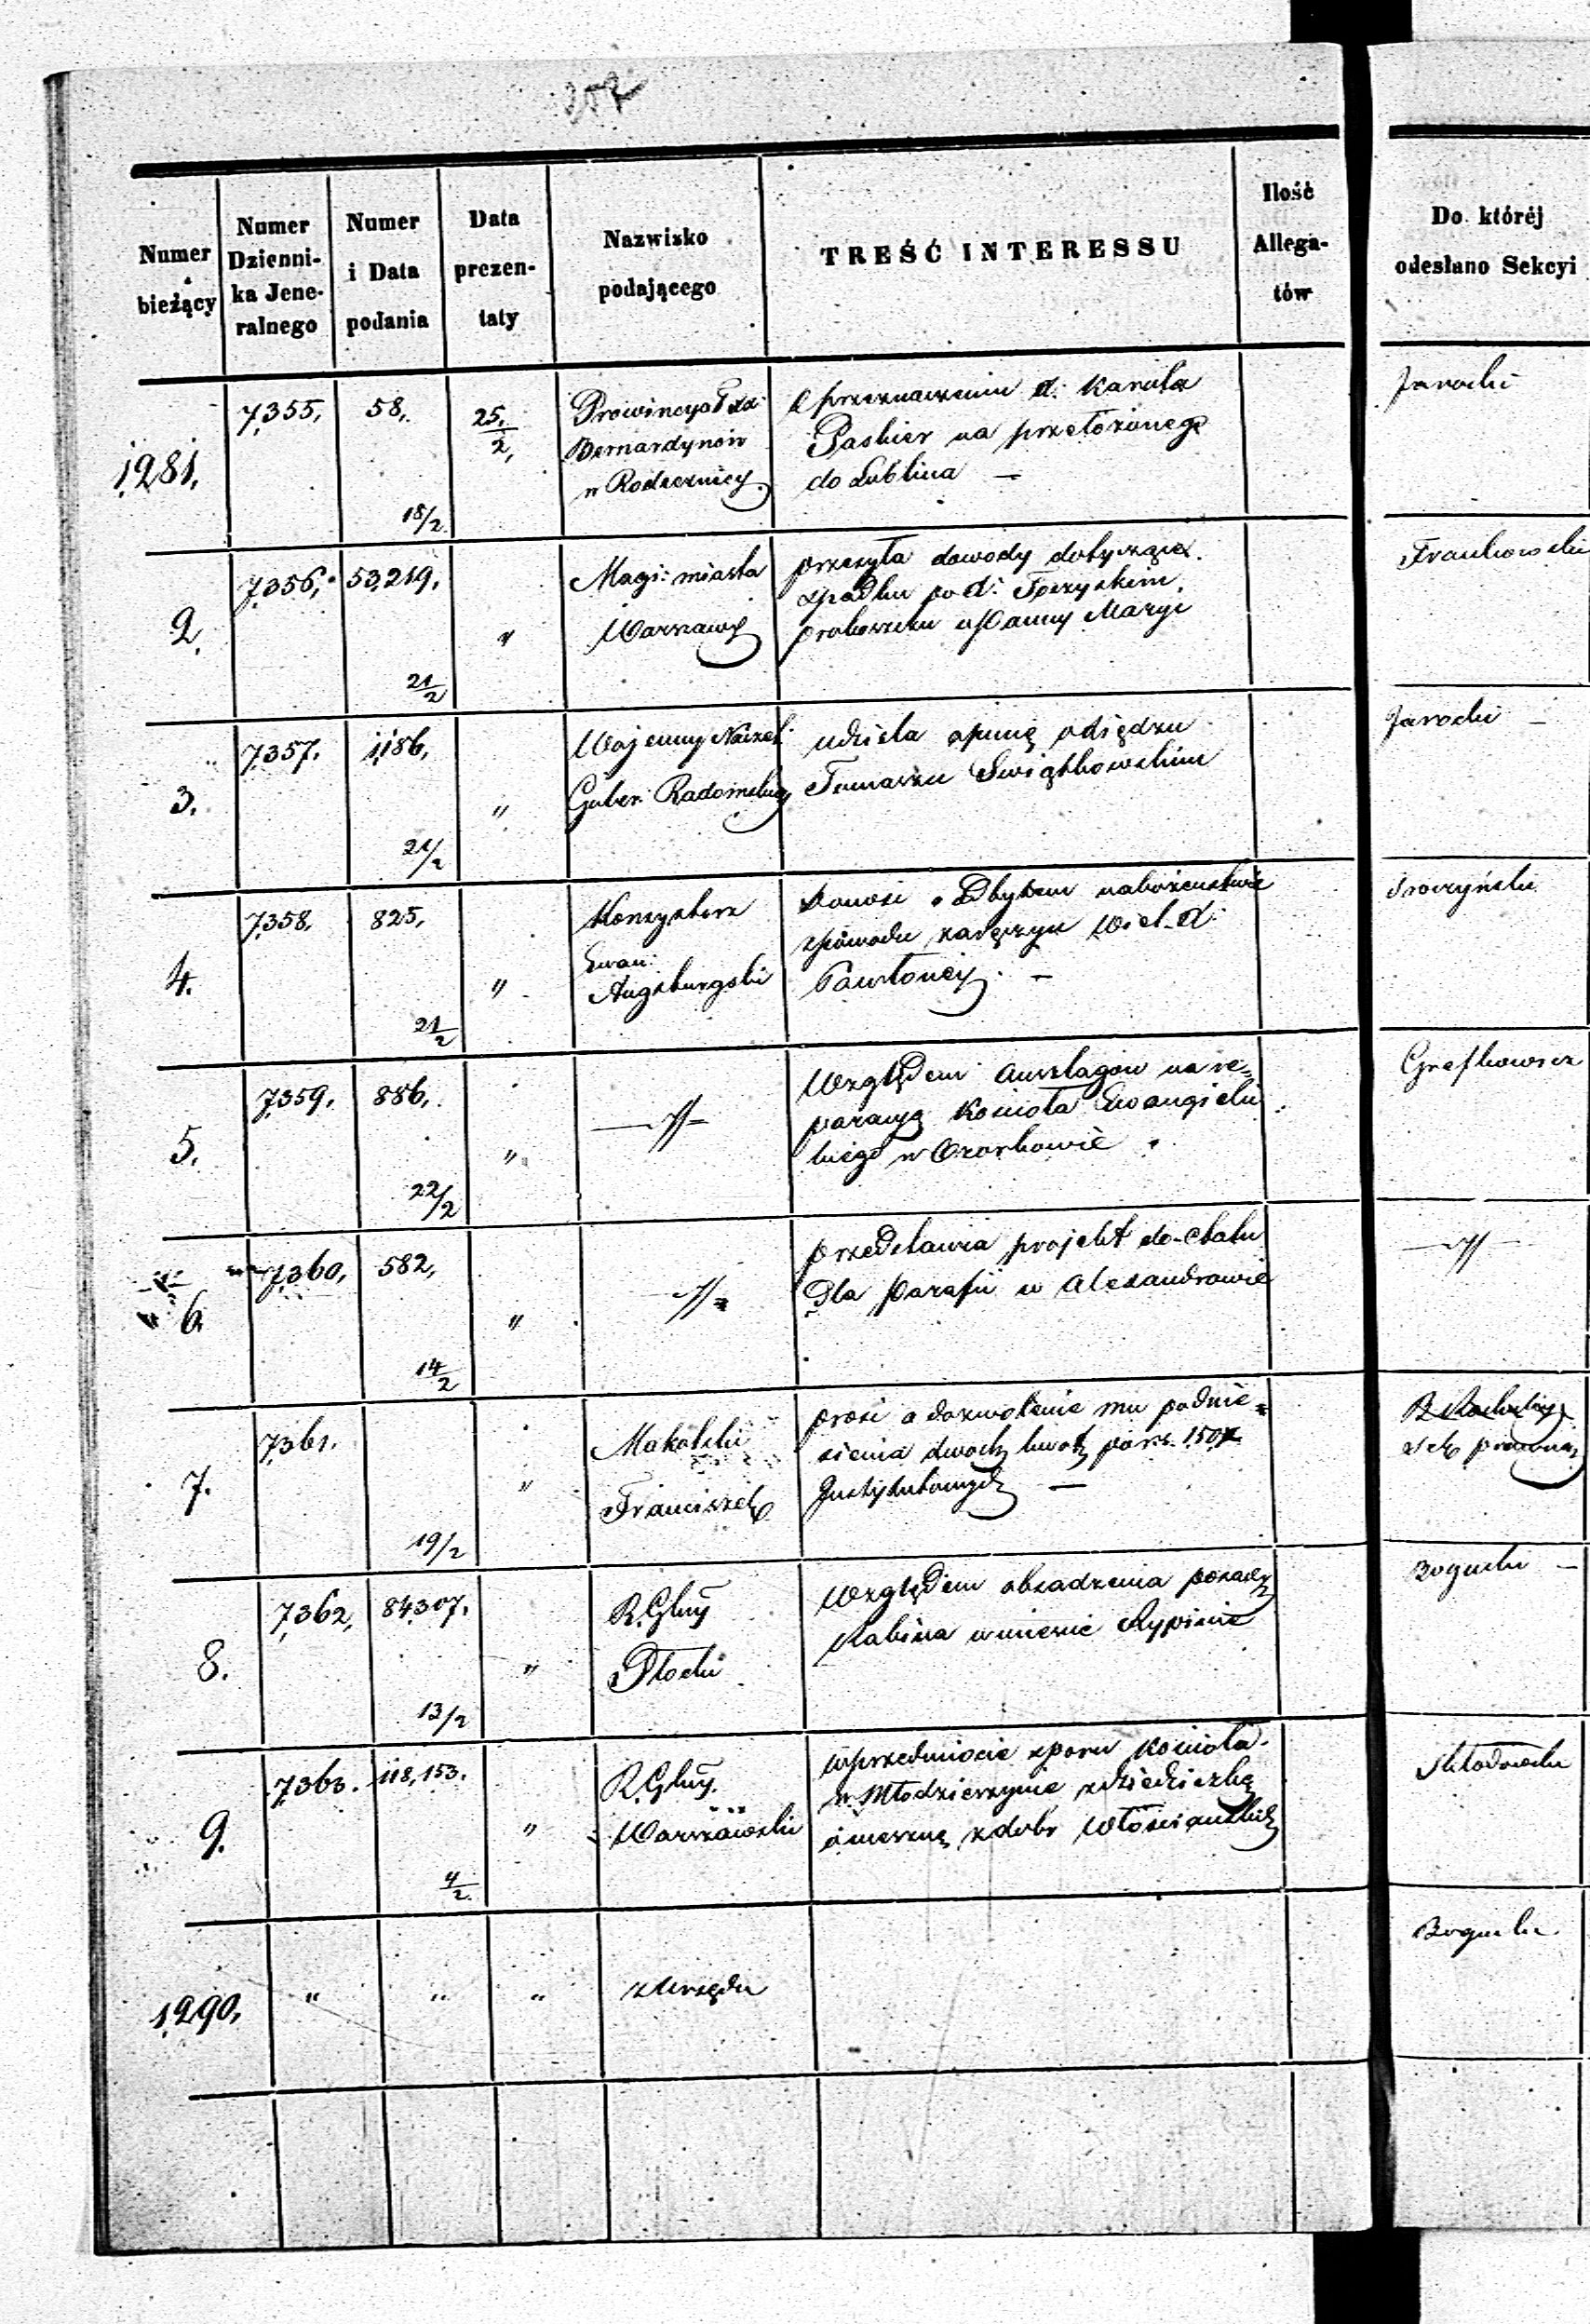 257
Numer bieżący
Numer Dzienni-ka Jene-ralnego
Numer i Data podania
Data prezen-taty
Nazwisko podającego
TREŚĆ INTERESSU
Ilość Allega-tów
Do któréj odesłano Sekcyi
1281. 7355. 58. 18/2 25/2
Prowincyał
Bernardynów
w Radecznicy
O przeznaczeniu X. Karola
Paskier na przełożonego
do Lublina —
Jarocki
2. 7356. 53,219. 21/2 "
Magi: miasta
Warszawy
przesyła dowody dotyczące
spadku po X:
proboszczu u Panny Maryi
Frankowski
3. 7357. 1186. 21/2 "
Wojenny Naczel:
Guber: Radomskiej
udziela opinię o księdzu
Tomaszu Swiątkowskim
Jarocki —
4. 7358. 825. 21/2 "
Konsystorz
Ewan:
Augsburgski
donosi o odbytem nabożeństwie
z powodu zaręczyn Wiel. X:
Pawłowicz —
5. 7359. 886. 22/2 "
—//—
Względem anszlagów na re=
paracyą Kościoła Ewangielic
kiego w Ozorkowie
Grefkowicz
6. 7360. 582. 14/2 "
—//—
przedstawia projekt do etatu
Dla parafii w Alexandrowie
—//—
7. 7361. 19/2 "
Makólski
Franciszek
prosi o dozwolenie mu podnie=
sienia dwóch kwot po rs. 150
Instytutowych —
prawna
8. 7362. 84307. 13/2 "
R. Glny
Płocki
Względem obsadzenia posady
Rabina w mieście Rypinie
Bogucki —
9. 7363. 118,153. 4/2 "
R. Glny
Warszawski
w przedmiocie sporu Kościoła
w Młodzieszynie z dziedziczką
o meszne z dóbr Włościańskich
Młodowski
1290. " " "
z Urzędu
Bogucki